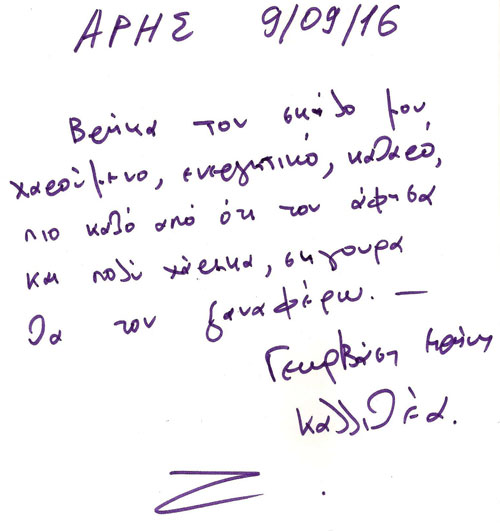 ΑΡΗΣ 9/09/16
Βρήκα τον σκύλο μου
χαρούμενο, ενεργητικό, καθαρό,
πιο καλό από ότι τον άφησα
και πολύ χάρηκα, σιγουρα
θα τον ξαναφέρω. —
Καλλιθέα.